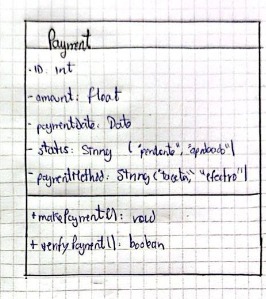 Payment
- ID: Int
- amount: float
- paymentDate: Date
- status: String ("pendiente", "aprobado")
- paymentMethod: String ("tarjeta", "efectivo")
+ makePayment(): void
+ verifyPayment(): boolean